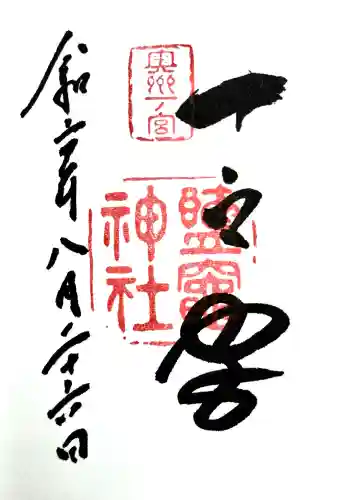 奥州
一宮
一之宮
鹽竈
神社
令和六年八月二十六日